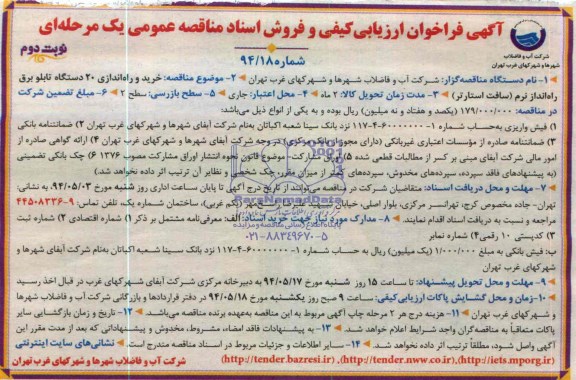 آگهی فراخوان ارزیابی کیفی و فروش اسناد مناقصه عمومی یک مرحله‌ای
نوبت دوم
شماره ۹۴/۱۸
شرکت آب و فاضلاب
شهرها و شهرکهای غرب تهران
۱- نام دستگاه مناقصه‌گزار: شرکت آب و فاضلاب شهرها و شهرکهای غرب تهران ۲- موضوع مناقصه: خرید و راه‌اندازی ۲۰ دستگاه تابلو برق
راه‌انداز نرم (سافت استارتر) ۳- مدت زمان تحویل کالا: ۲ ماه ۴- محل اعتبار: جاری ۵- سطح بازرسی: سطح ۲ ۶- مبلغ تضمین شرکت
در مناقصه: ۱۷۹/۰۰۰/۰۰۰ (یکصد و هفتاد و نه میلیون) ریال بوده و به یکی از انواع ذیل می‌باشد:
۱) فیش واریزی به‌حساب شماره ۱-۱۱۷-۴-۶۰۰۰۰۰۰۰ نزد بانک سینا شعبه اکباتان به‌نام شرکت آبفای شهرها و شهرکهای غرب تهران ۲) ضمانتنامه بانکی
۳) ضمانتنامه صادره از مؤسسات اعتباری غیربانکی (دارای مجوز از بانک مرکزی) در وجه شرکت آبفای شهرها و شهرکهای غرب تهران ۴) ارائه گواهی صادره از
امور مالی شرکت آبفای مبنی بر کسر از مطالبات قطعی شده ۵) اوراق مشارکت، موضوع قانون نحوه انتشار اوراق مشارکت مصوب ۱۳۷۶ ۶) چک بانکی تضمینی
(به پیشنهادهای فاقد سپرده، سپرده‌های مخدوش، سپرده‌های کمتر از میزان مقرر، چک شخصی و نظایر آن ترتیب اثر داده نخواهد شد)
۷- مهلت و محل دریافت اسناد: متقاضیان شرکت در مناقصه می‌توانند از تاریخ درج آگهی تا پایان ساعت اداری روز شنبه مورخ ۹۴/۰۵/۰۳ به نشانی:
تهران- جاده مخصوص کرج، تهرانسر مرکزی، بلوار اصلی، خیابان غربی)، ساختمان شماره یک، تلفن تماس: ۹-۴۴۵۰۸۲۳۶
مراجعه و نسبت به دریافت اسناد اقدام نمایند. ۸- مدارک مورد نیاز جهت خرید اسناد: الف: معرفی‌نامه مشتمل بر ذکر ۱) شماره اقتصادی ۲) شماره ثبت
۳) کدپستی ۱۰ رقمی ۴) شماره نمابر
ب: فیش بانکی به مبلغ ۱/۰۰۰/۰۰۰ (یک میلیون) ریال به حساب شماره ۱-۱۱۷-۴-۶۰۰۰۰۰۰۰ نزد بانک سینای شعبه اکباتان به‌نام شرکت آبفای شهرها و
شهرکهای غرب تهران
۹- مهلت و محل تحویل پیشنهاد: تا ساعت ۱۵ روز شنبه مورخ ۹۴/۰۵/۱۷ به دبیرخانه مرکزی شرکت آبفای شهرکهای غرب در قبال اخذ رسید
۱۰- زمان و محل گشایش پاکات ارزیابی کیفی: ساعت ۹ صبح روز یکشنبه مورخ ۹۴/۰۵/۱۸ در دفتر قراردادها و بازرگانی شرکت آب و فاضلاب شهرها
و شهرکهای غرب تهران ۱۱- هزینه درج هر ۲ مرحله چاپ آگهی مربوط به این مناقصه به‌عهده برنده مناقصه می‌باشد ۱۲- تاریخ و زمان بازگشایی سایر
پاکات متعاقباً به مناقصه‌گران واجد شرایط اعلام خواهد شد. ۱۳- به پیشنهادات فاقد امضاء، مشروط، مخدوش و پیشنهاداتی که بعد از مدت مقرر این
آگهی واصل شود، مطلقاً ترتیب اثر داده نخواهد شد. ۱۴- سایر اطلاعات و جزئیات مربوط در اسناد مناقصه مندرج است. نشانی‌های سایت اینترنتی
(http://tender.bazresi.ir) ,(http://tender.nww.co.ir),(http://iets.mporg.ir)
شرکت آب و فاضلاب شهرها و شهرکهای غرب تهران
ParsNamadData
۰۲۱-۸۸۳۴۹۶۷۰-۵